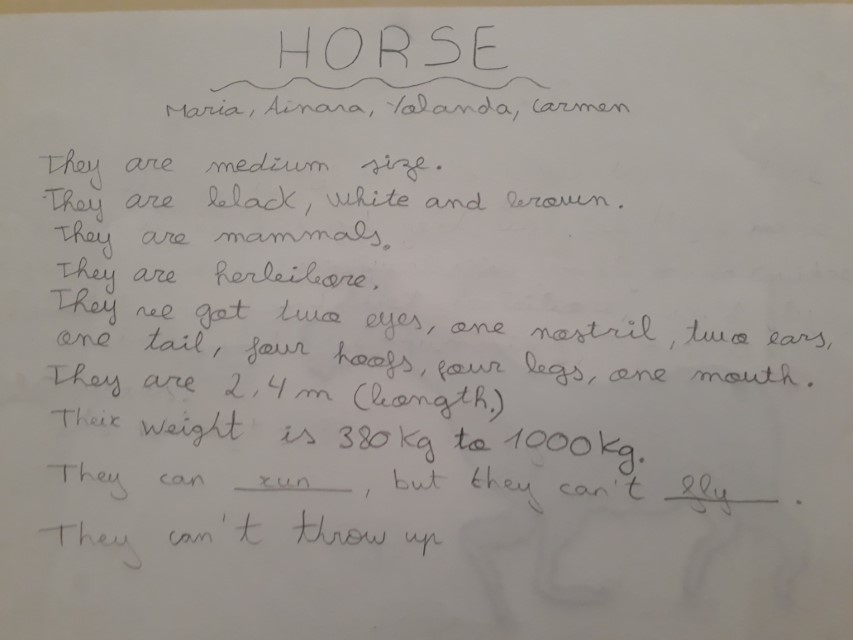 HORSE
Maria, Ainara, Yolanda, Carmen
They are medium size.
They are black, white and brown.
They are mammals.
They are herbibore.
They got two eyes, one nostril, two ears,
one tail, four hoofs, four legs, one mouth.
They are 2,4 m (longth.)
Their weight is 380 kg to 1000 kg.
They can run, but they can't fly.
They can't throw up